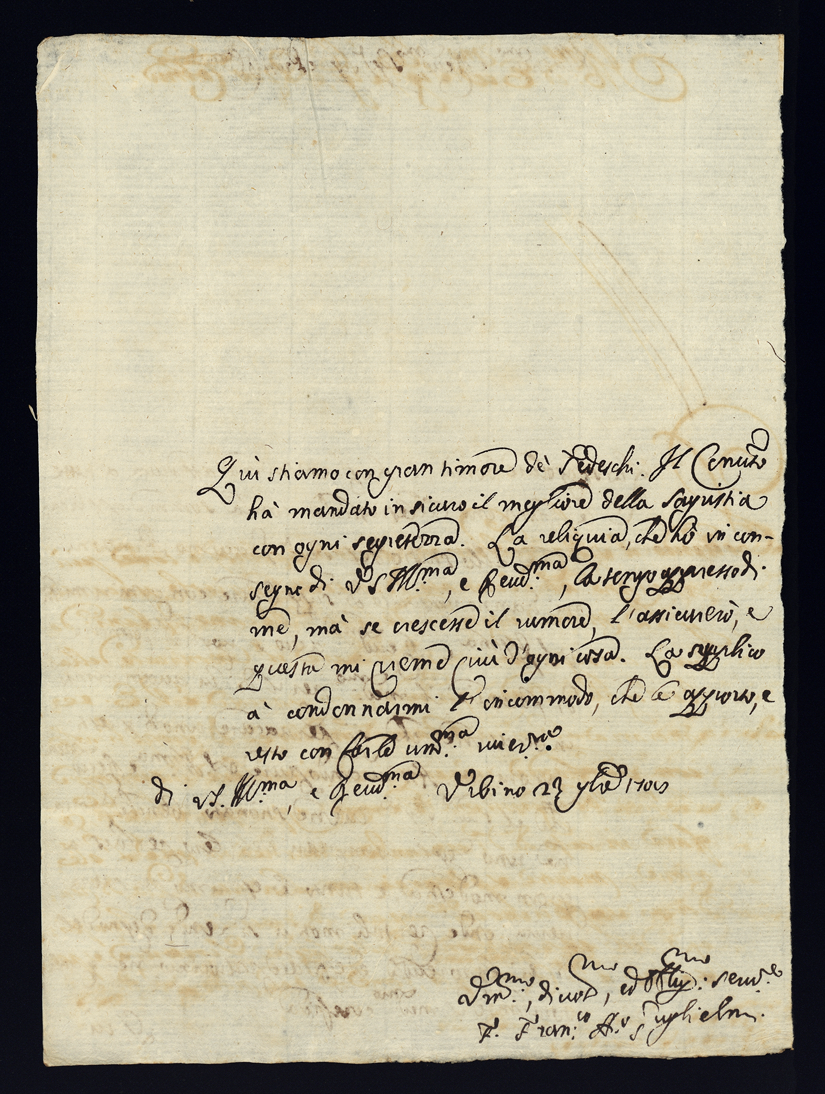 Quì stiamo con gran timore de' Tedeschi. Il Convto
hà mandato in sicuro il megliore della Sagristia
con ogni segretezza. La reliquia, che hò in con-
segna di V.S. Ill.ma, e Reud.ma, la tengo appresso di
me, mà se crescesse il rumore, l'assicurerò, e
questa mi preme più d'ogni cosa. La supplico
à condonnarmi l'incommodo, che le apporto, e
resto con farle um.ma riuer.za
di V.S. Ill.ma, e Reud.ma Urbino 23
Um.mo, diuot.mo, ed obblig.mo seru.re
F. Fran.co Ant.o Guglielmi